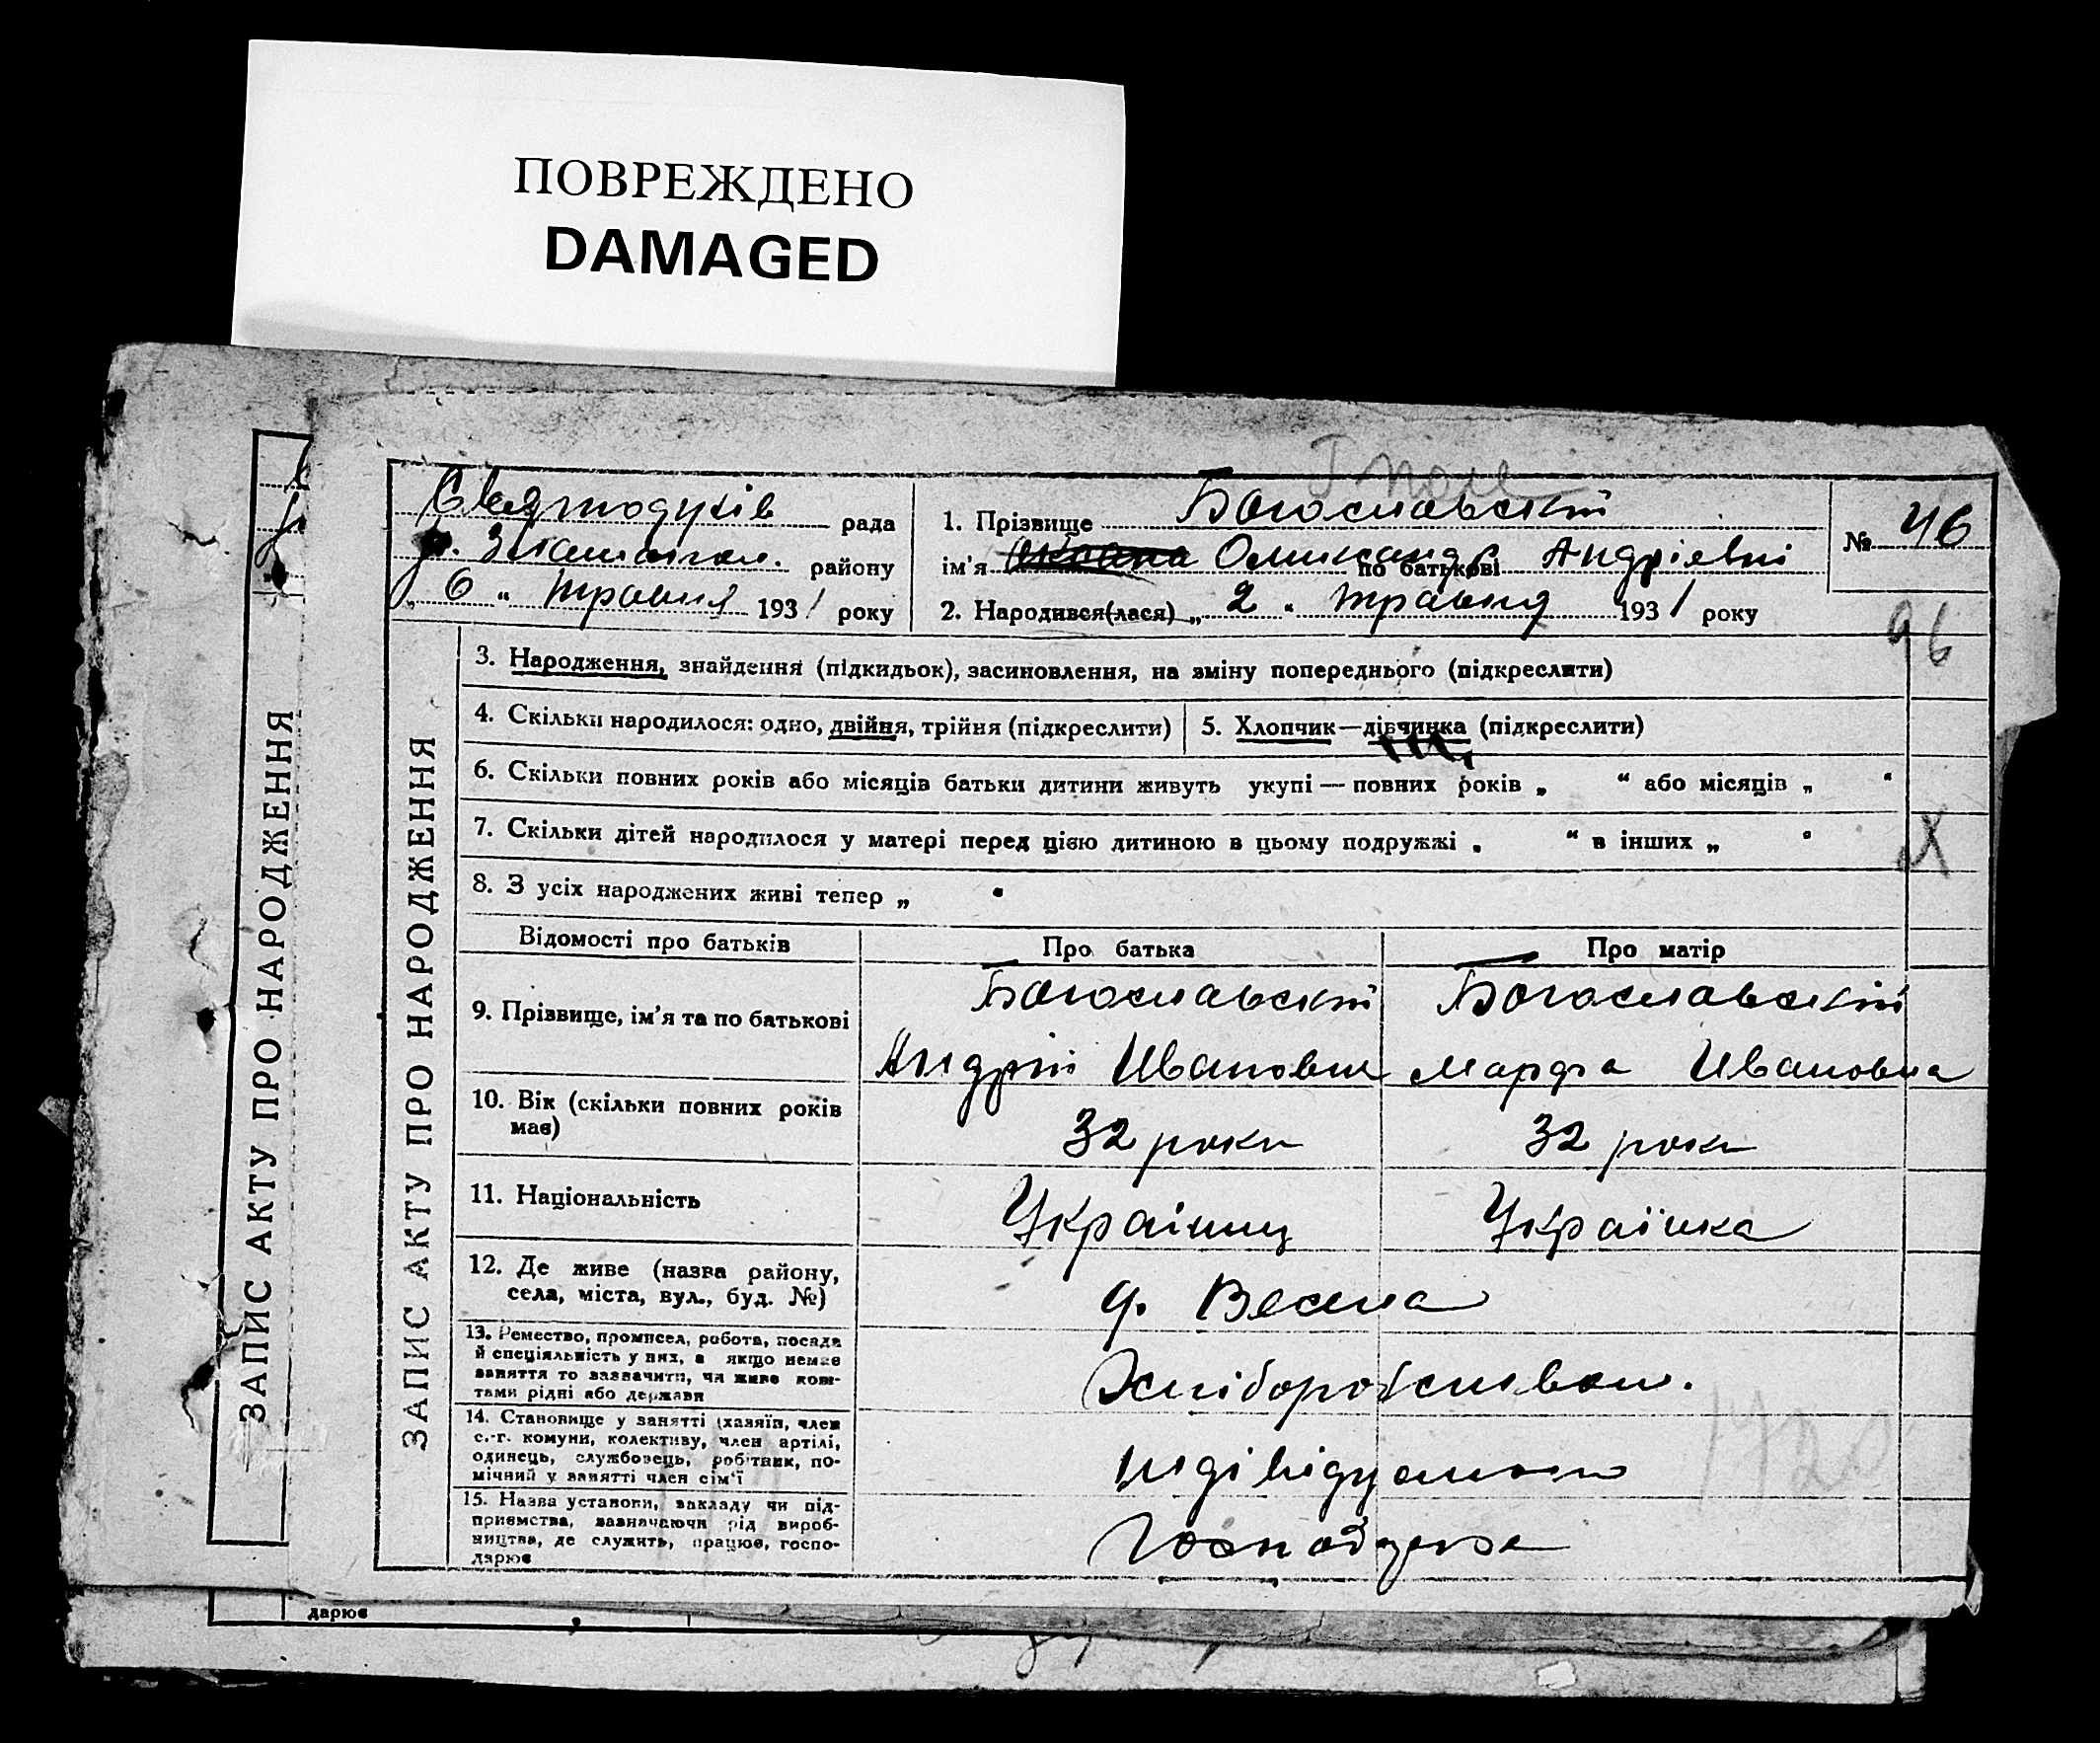 ПОВРЕЖДЕНО
DAMAGED
Святодухів рада
району
„ 6 “ травня 1931 року
1. Прізвище Богославський
ім'я Олександр по батькові Андрієвні
2. Народився(лася) „ 2 “ травня 1931 року
№ 46
96
3. Народження, знайдення (підкидьок), засиновлення, на зміну попереднього (підкреслити)
4. Скільки народилося: одно, двійня, трійня (підкреслити)
5. Хлопчик—дівчинка (підкреслити)
6. Скільки повних років або місяців батьки дитини живуть укупі — повних років „ “ або місяців „ “
7. Скільки дітей народилося у матері перед цією дитиною в цьому подружжі „ “ в інших „ “
X
8. З усіх народжених живі тепер „ “
ЗАПИС АКТУ ПРО НАРОДЖЕННЯ
ЗАПИС АКТУ ПРО НАРОДЖЕННЯ
Відомості про батьків
Про батька
Про матір
9. Прізвище, ім'я та по батькові
Богославскій
Андрій Иванович
Богославскій
Марфа Ивановна
10. Вік (скільки повних років
має)
32 роки
32 роки
11. Національність
Україниц
Українка
12. Де живе (назва району,
села, міста, вул., буд. №)
Весела
13. Ремество, промисел, робота, посада
й спеціяльність у них, а якщо немає
заняття то зазначити, чи живе кош-
тами рідні або держави
Хліборобством.
14. Становище у занятті (хазяїн, член
с.-г. комуни, колективу, член артілі,
одинець, службовець, робітник, по-
мічний у занятті член сім'ї
15. Назва установи, закладу чи під-
приємства, зазначаючи рід вироб-
ництва, де служить, працює, госпо-
дарює
дарює